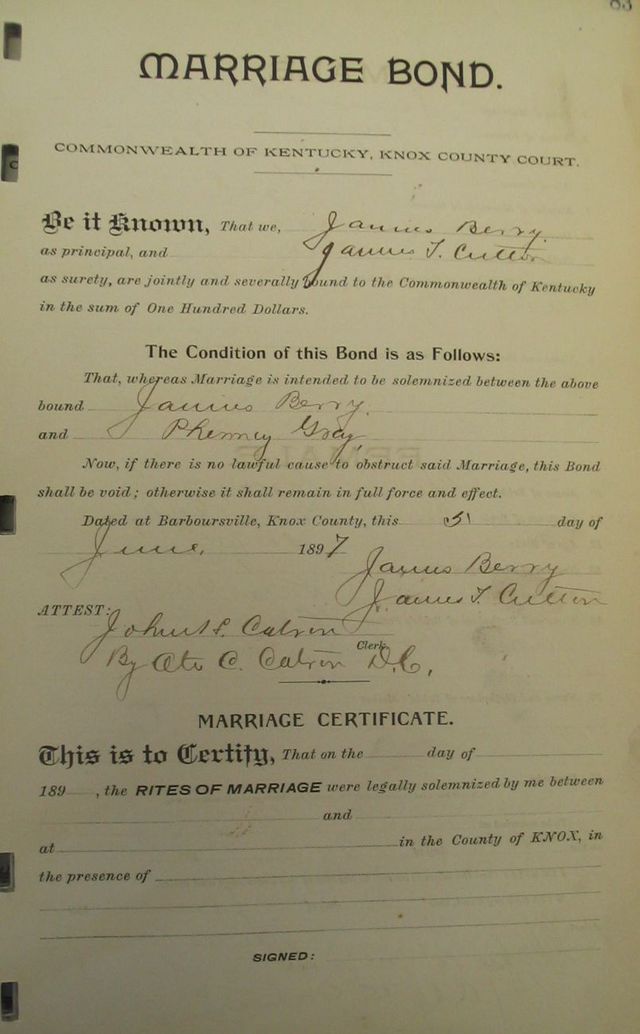 83
MARRIAGE BOND.
COMMONWEALTH OF KENTUCKY, KNOX COUNTY COURT.
Be it Known, That we, James Berry
as principal, and James T. Cutton
as surety, are jointly and severally bound to the Commonwealth of Kentucky
in the sum of One Hundred Dollars.
The Condition of this Bond is as Follows:
That, whereas Marriage is intended to be solemnized between the above
bound James Berry.
and Gray
Now, if there is no lawful cause to obstruct said Marriage, this Bond
shall be void; otherwise it shall remain in full force and effect.
Dated at Barboursville, Knox County, this 5 day of
June, 1897
James Berry
James T. Cutton
ATTEST:
John Catron
Clerk
By C. Catron D.C.
MARRIAGE CERTIFICATE.
This is to Certify, That on the day of
189 , the RITES OF MARRIAGE were legally solemnized by me between
and
at in the County of KNOX, in
the presence of
SIGNED: